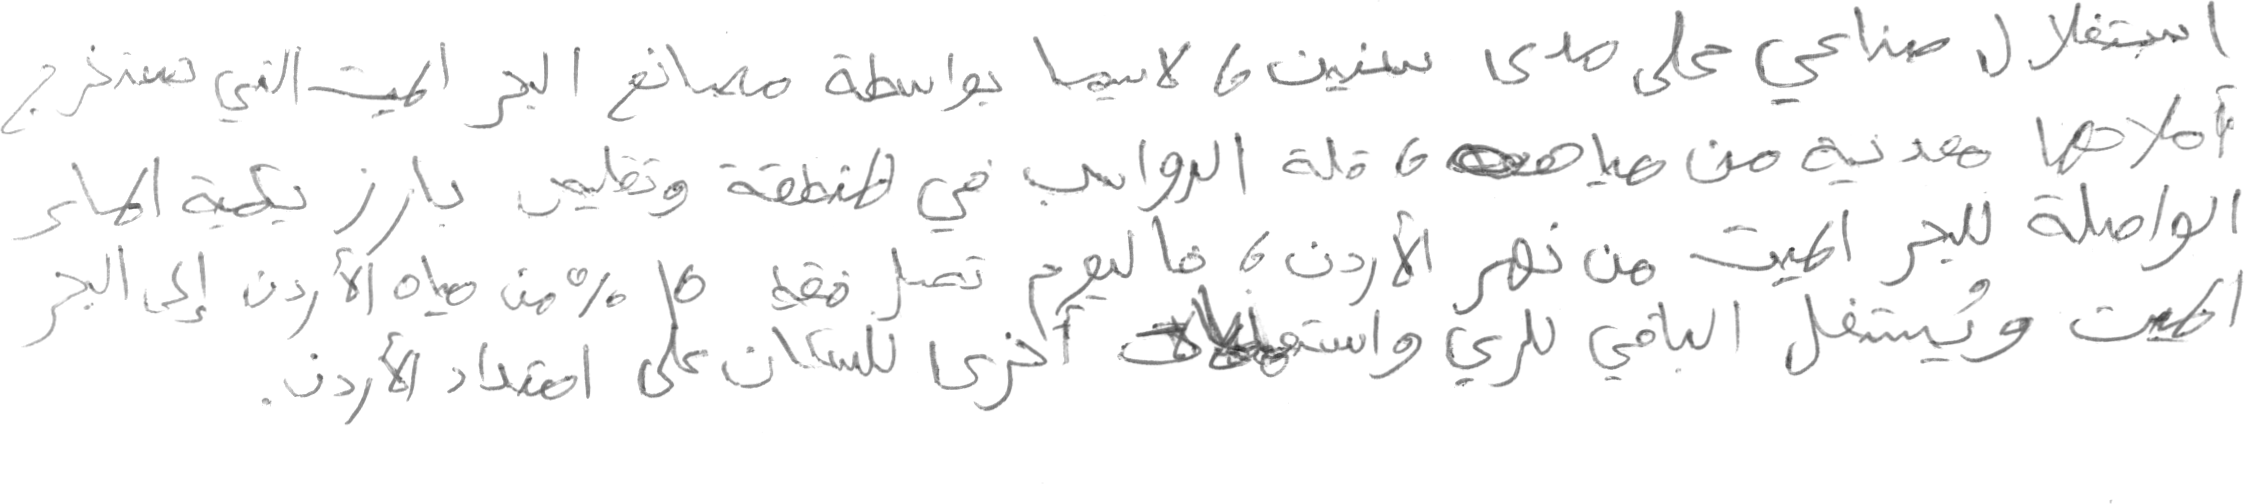 استغلال صناعي على مدى سنين، لاسيما بواسطة مصانع البحر الميت التي تستخرج
أملاحها معدنية من مياهه، قلة الرواسب في المنطقة وتقليص بارز بكمية الماء
الواصلة للبحر الميت من نهر الأردن، فاليوم تصل فقط 10% من مياه الأردن إلى البحر
الميت ويُستغل الباقي للري واستعمالات أخرى للسكان على امتداد الأردن.